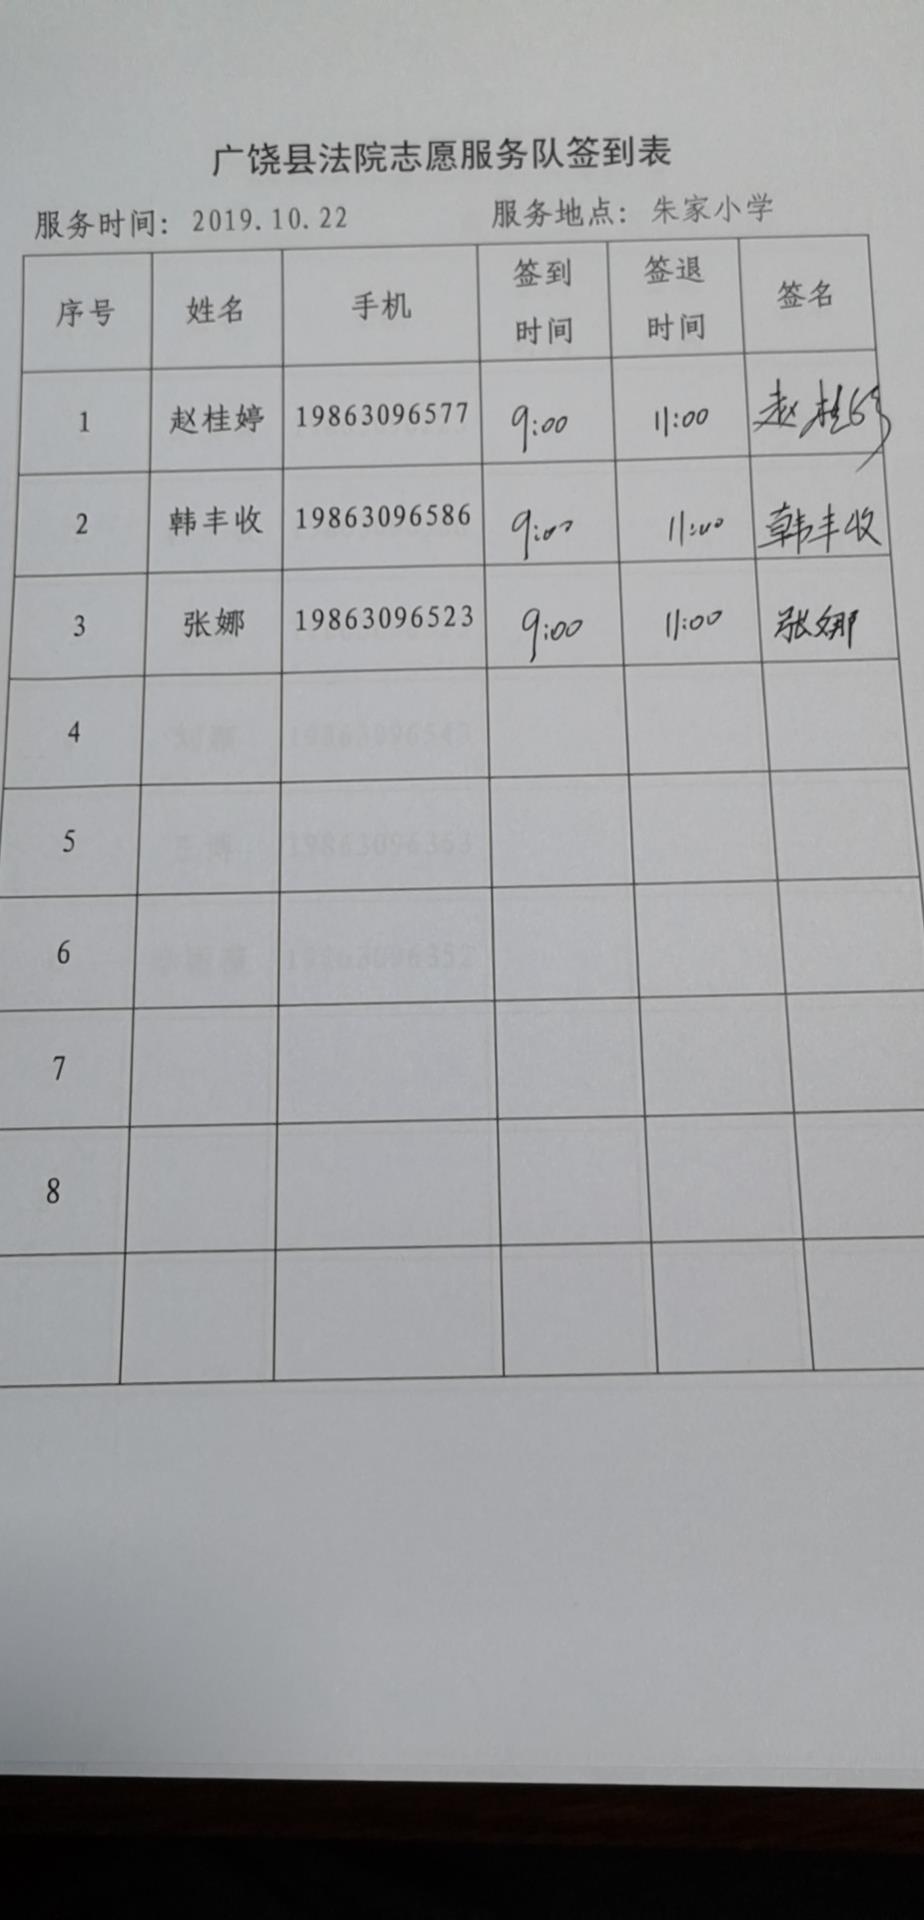 广饶县法院志愿服务队签到表
服务时间: 2019.10.22 服务地点: 朱家小学
序号 姓名 手机 签到时间 签退时间 签名
1 赵桂婷 19863096577 9:00 11:00 赵桂婷
2 韩丰收 19863096586 9:00 11:00 韩丰收
3 张娜 19863096523 9:00 11:00 张娜
4
5
6
7
8